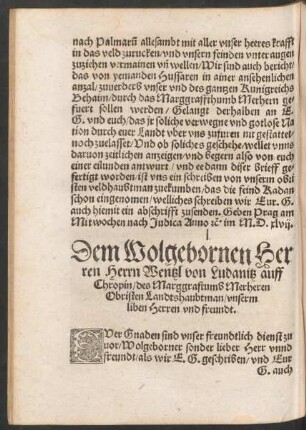 nach Palmarū allesambt mit aller vnser heeres krafft
in das veld zurucken/vnd vnsern feinden vnter augen
zuziehen vermainen vñ wellen/Wir sind auch bericht/
das von yemanden Hussaren in ainer ansehenlichen
anzal/zuuerderb vnser vnd des gantzen Kunigreichs
Behaim/durch das Marggraffthumb Merhern ge-
fuert sollen werden/Gelangt derhalben an E.
G. vnd euch/das jr soliche verwegne vnd gotlose Na
tion durch ewer Landt vber vns zufurn nit gestattet/
noch zuelasset/Vnd ob soliches geschehe/wellet vnns
daruon zeitlichen anzeigen/vnd begern also von euch
einer eilunden antwurt/vnd eedann diser Brieff ge-
fertigt worden/ist vns ein schreiben von vnserm obri
sten veldhaubtman zuekumben/das die feind Kadan
schon eingenomen/welliches schreiben wir Eur. G.
auch hiemit ein abschrifft zusenden. Geben Prag am
Mitwochen nach Judica Anno ꝛc̃ im M.D.xlvij.
Dem Wolgebornen Her
ren Herrn Wentzl von Ludanitz auff
Chropin/des Marggrafftums Merheren
Obristen Landtshaubtman/vnserm
liben Herren vnd freundt.
EWer Gnaden sind vnser freundtlich dienst zu
uor/Wolgeborner sonder lieber Herr vnnd
freundt/als wir E. G. geschriben/vnd Eur
G. auch